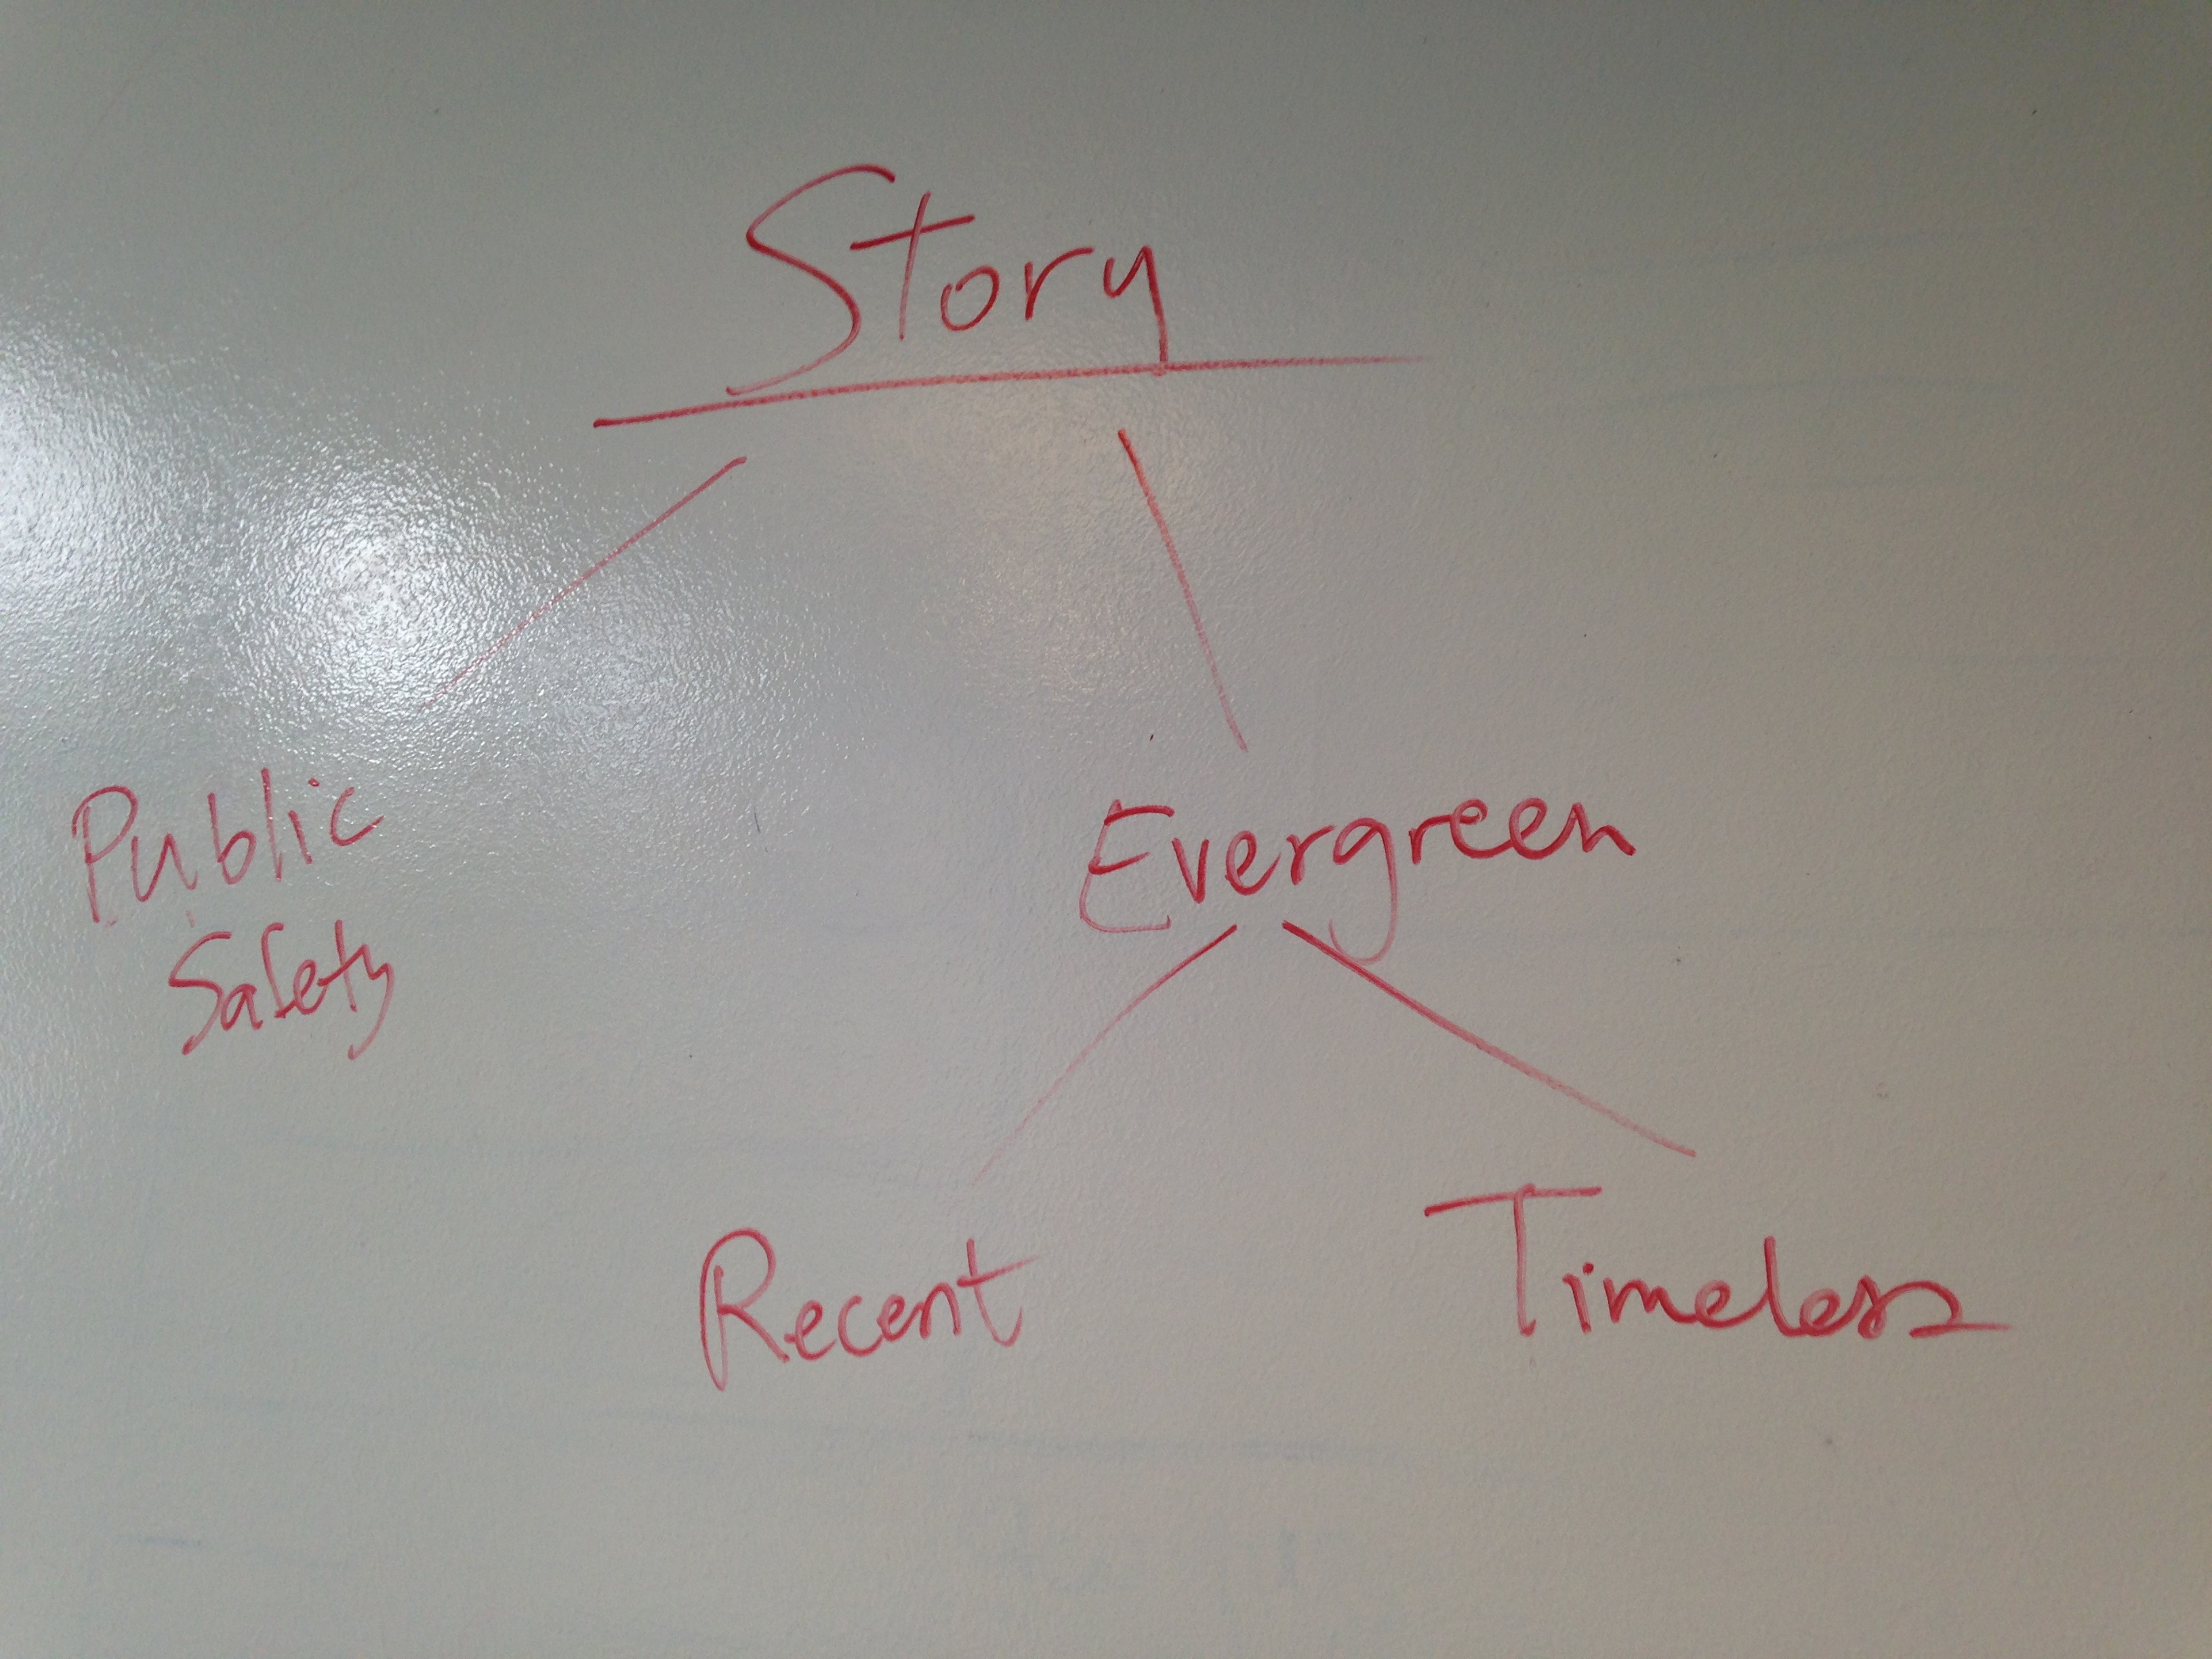 Story
Public
Safety
Evergreen
Recent
Timeless